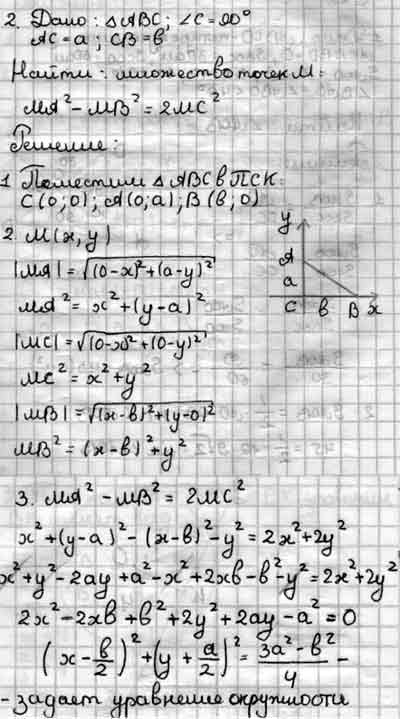 2. Дано: △ABC; ∠C=90°
AC=a; CB=b
Найти: множество точек M:
MA²-MB²=2MC²
Решение:
1 Поместим △ABC в ПСК:
C(0;0); A(0;a); B(b;0)
2. M(x,y)
|MA|=√((0-x)²+(a-y)²)
MA²=x²+(y-a)²
|MC|=√((0-x)²+(0-y)²)
MC²=x²+y²
|MB|=√((x-b)²+(y-0)²)
MB²=(x-b)²+y²
y
A
a
C b B x
3. MA²-MB²=2MC²
x²+(y-a)²-(x-b)²-y²=2x²+2y²
x²+y²-2ay+a²-x²+2xb-b²-y²=2x²+2y²
2x²-2xb+b²+2y²+2ay-a²=0
(x-b/2)²+(y+a/2)²=(3a²-b²)/4 -
- задает уравнение окружности